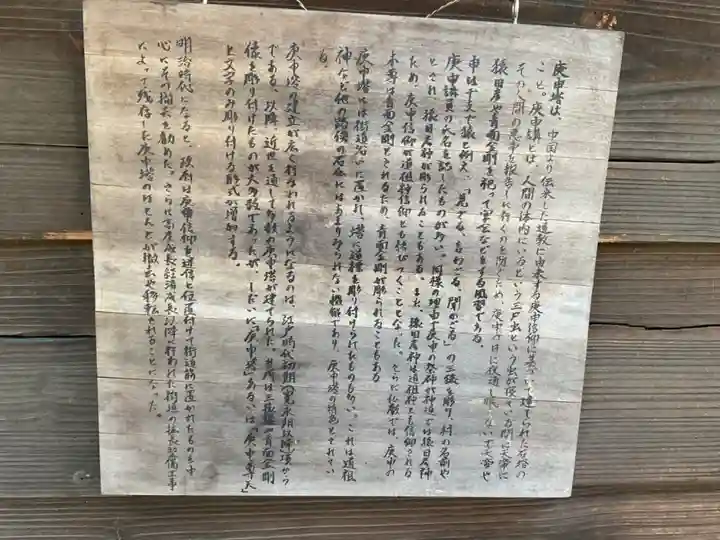 庚申塔は、中国より伝来した道教に由来する庚申信仰に基づいて建てられた石塔の
こと。庚申講とは、人間の体内にいるという三尸虫という虫が寝ている間に天帝に
その人間の悪事を報告しに行くのを防ぐため、庚申の日に夜通し眠らないで天帝や
猿田彦や青面金剛を祀って宴会などをする風習である。
申は干支で猿に例え、「見ざる、言わざる、聞かざる」の三猿を彫り、村の名前や
庚申講員の氏名を記したものが多い。同様の理由で庚申の祭神が神道では猿田彦神
とされ、猿田彦神が彫られることもある。また、猿田彦神は道祖神とも信仰される
ため、庚申信仰が道祖神信仰とも結びつくこととなった。さらに仏教では、庚申の
本尊は青面金剛とされるため、青面金剛が彫られることもある
庚申塔には街道沿いに置かれ、塔に道標を彫り付けられたものも多い。これは道祖
神など他の路傍の石仏にはあまりみられない機能であり、庚申塔の特色とされてい
る。
庚申塔の建立が広く行われるようになるのは、江戸時代初期(寛永期以降)頃から
である。以降、近世を通して多数の庚申塔が建てられた。当初は三猿像や青面金剛
像を彫り付けたものが大多数であったが、しだいに「庚申塔」あるいは「庚申尊天」
と文字のみ彫り付ける形式が増加する。
明治時代になると、政府は庚申信仰を迷信と位置付けて街道筋に置かれたものを中
心にその撤去を勧めた。さらに高度経済成長期以降に行われた街道の拡張整備工事
によって残存した庚申塔のほとんどが撤去や移転されることになった。